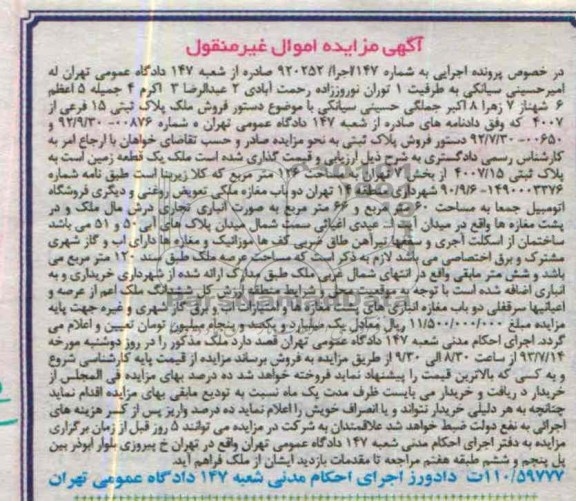 آگهی مزایده اموال غیرمنقول
در خصوص پرونده اجرایی به شماره ۱۴۷/اجرا/ ۹۲۰۲۵۲ صادره از شعبه ۱۴۷ دادگاه عمومی تهران له
امیرحسینی سیانکی به طرفیت ۱ توران نوروززاده رحمت آبادی ۲ عبدالرضا ۳ اکرم ۴ جمیله ۵ اعظم
۶ شهناز ۷ زهرا ۸ اکبر جملگی حسینی سیانکی با موضوع دستور فروش ملک پلاک ثبتی ۱۵ فرعی از
۴۰۰۷ که وفق دادنامه های صادره از شعبه ۱۴۷ دادگاه عمومی تهران به شماره ۰۰۸۷۶-۹۲/۹/۳۰ و
۰۰۶۵۰-۹۲/۷/۳۰ دستور فروش پلاک ثبتی به نحو مزایده صادر و حسب تقاضای خواهان با ارجاع امر به
کارشناس رسمی دادگستری به شرح ذیل ارزیابی و قیمت گذاری شده است ملک یک قطعه زمین است به
پلاک ثبتی ۴۰۰۷/۱۵ از بخش ۷ تهران به مساحت ۱۲۶ متر مربع که کلا زیربنا است طبق نامه شماره
۱۴۹۰۰۰۳۳۷۶-۹۰/۹/۶ شهرداری منطقه ۱۴ تهران دو باب مغازه ملکی تعویض روغنی و دیگری فروشگاه
اتومبیل جمعا به مساحت ۶۰ متر مربع و ۶۶ متر مربع به صورت انباری تجاری درش مال ملک و در
پشت مغازه ها واقع در میدان عیدی اغیائی سمت شمال میدان پلاک های آبی ۵۰ و ۵۱ می باشد
ساختمان از اسکلت آجری و سقفها تیرآهن طاق ضربی کف ها موزائیک و مغازه ها دارای آب و گاز شهری
مشترک و برق اختصاصی می باشد لازم به ذکر است که مساحت عرصه ملک طبق سند ۱۲۰ متر مربع می
باشد و شش متر مابقی واقع در انتهای شمال غربی ملک طبق مدارک ارائه شده از شهرداری خریداری و به
انباری اضافه شده است با توجه به موقعیت محل و شرایط منطقه ارزش کل ششدانگ ملک اعم از عرصه و
اعیانیها سرقفلی دو باب مغازه انباری های پشت مغازه ها و امتیازات آب و برق گاز شهری و غیره جهت پایه
مزایده مبلغ ۱۱/۵۰۰/۰۰۰/۰۰۰ ریال معادل یک میلیارد و یکصد و پنجاه میلیون تومان تعیین و اعلام می
گردد. اجرای احکام مدنی شعبه ۱۴۷ دادگاه عمومی تهران قصد دارد ملک مذکور را در روز دوشنبه مورخه
۹۳/۷/۱۴ از ساعت ۸/۳۰ الی ۹/۳۰ از طریق مزایده به فروش برساند مزایده از قیمت پایه کارشناسی شروع
و به کسی که بالاترین قیمت را پیشنهاد نماید فروخته خواهد شد ده درصد بهای مزایده فی المجلس از
خریدار د ریافت و خریدار می بایست ظرف مدت یک ماه نسبت به تودیع مابقی بهای مزایده اقدام نماید
چنانچه به هر دلیلی خریدار نتواند و یا انصراف خویش را اعلام نماید ده درصد واریز پس از کسر هزینه های
اجرائی به نفع دولت ضبط خواهد شد علاقمندان به شرکت در مزایده می توانند ۵ روز قبل از زمان برگزاری
مزایده به دفتر اجرای احکام مدنی شعبه ۱۴۷ دادگاه عمومی تهران واقع در تهران خ پیروزی بلوار ابوذر بین
پل پنجم و ششم طبقه هفتم مراجعه تا مقدمات بازدید ایشان از ملک فراهم آید.
۱۱۰/۵۹۷۷۷ت دادورز اجرای احکام مدنی شعبه ۱۴۷ دادگاه عمومی تهران